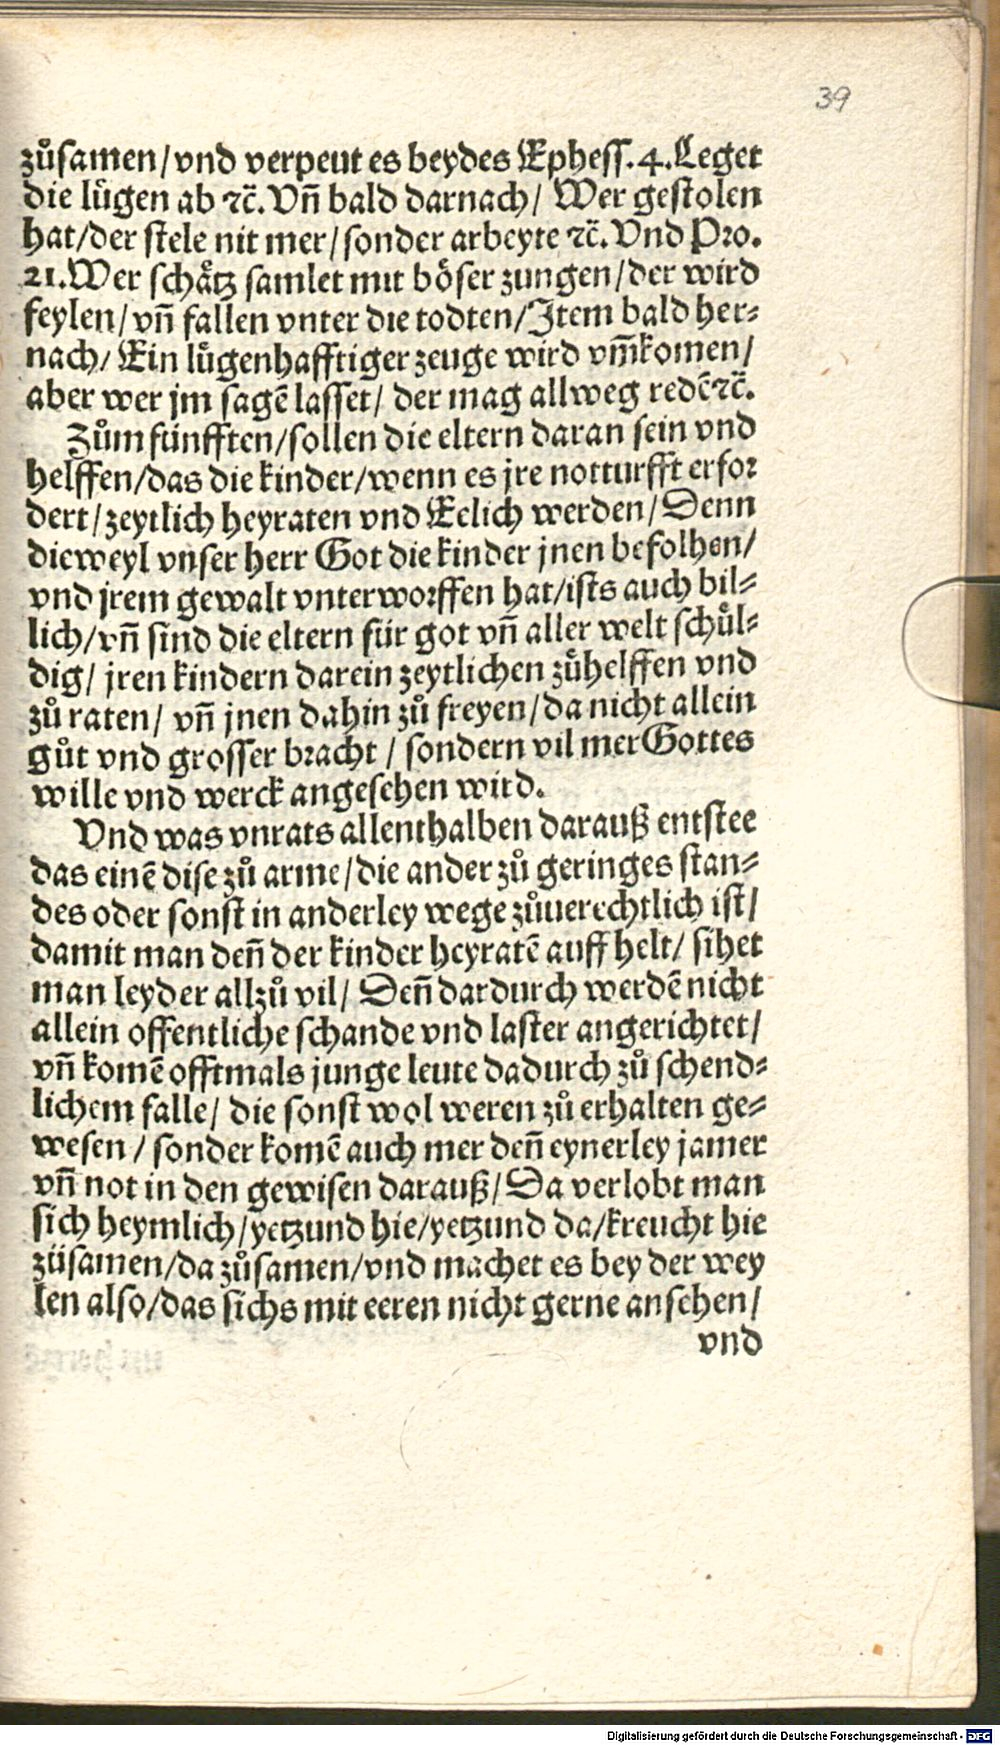 39
zůsamen/vnd verpeut es beydes Ephess.4.Leget
die lügen ab ꝛc̄. Vn̄ bald darnach/ Wer gestolen
hat/der stele nit mer/sonder arbeyte ꝛc̄. Vnd Pro.
21.Wer schaͤtz samlet mit boͤser zungen/der wird
feylen/vn̄ fallen vnter die todten/Item bald her⸗
nach/ Ein lügenhafftiger zeuge wird vm̄komen/
aber wer jm sagē lasset/ der mag allweg redē ꝛc̄.
Zům fünfften/sollen die eltern daran sein vnd
helffen/das die kinder/wenn es jre notturfft erfor
dert/zeytlich heyraten vnd Eelich werden/Denn
dieweyl vnser herr Got die kinder jnen befolhen/
vnd jrem gewalt vnterworffen hat/ists auch bil⸗
lich/vn̄ sind die eltern für got vn̄ aller welt schůl⸗
dig/ jren kindern darein zeytlichen zůhelffen vnd
zů raten/ vn̄ jnen dahin zů freyen/da nicht allein
gůt vnd grosser bracht / sondern vil mer Gottes
wille vnd werck angesehen wird.
Vnd was vnrats allenthalben darauß entstee
das einē dise zů arme/die ander zů geringes stan⸗
des oder sonst in anderley wege zůuerechtlich ist/
damit man den̄ der kinder heyratē auff helt/ sihet
man leyder allzů vil/ Den̄ dardurch werdē nicht
allein offentliche schande vnd laster angerichtet/
vn̄ komē offtmals junge leute dadurch zů schend⸗
lichem falle/ die sonst wol weren zů erhalten ge⸗
wesen / sonder komē auch mer den̄ eynerley jamer
vn̄ not in den gewisen darauß/Da verlobt man
sich heymlich/yetzund hie/yetzund da/kreucht hie
züsamen/da zůsamen/vnd machet es bey der wey
len also/das sichs mit eeren nicht gerne ansehen/
vnd
Digitalisierung gefördert durch die Deutsche Forschungsgemeinschaft - DFG